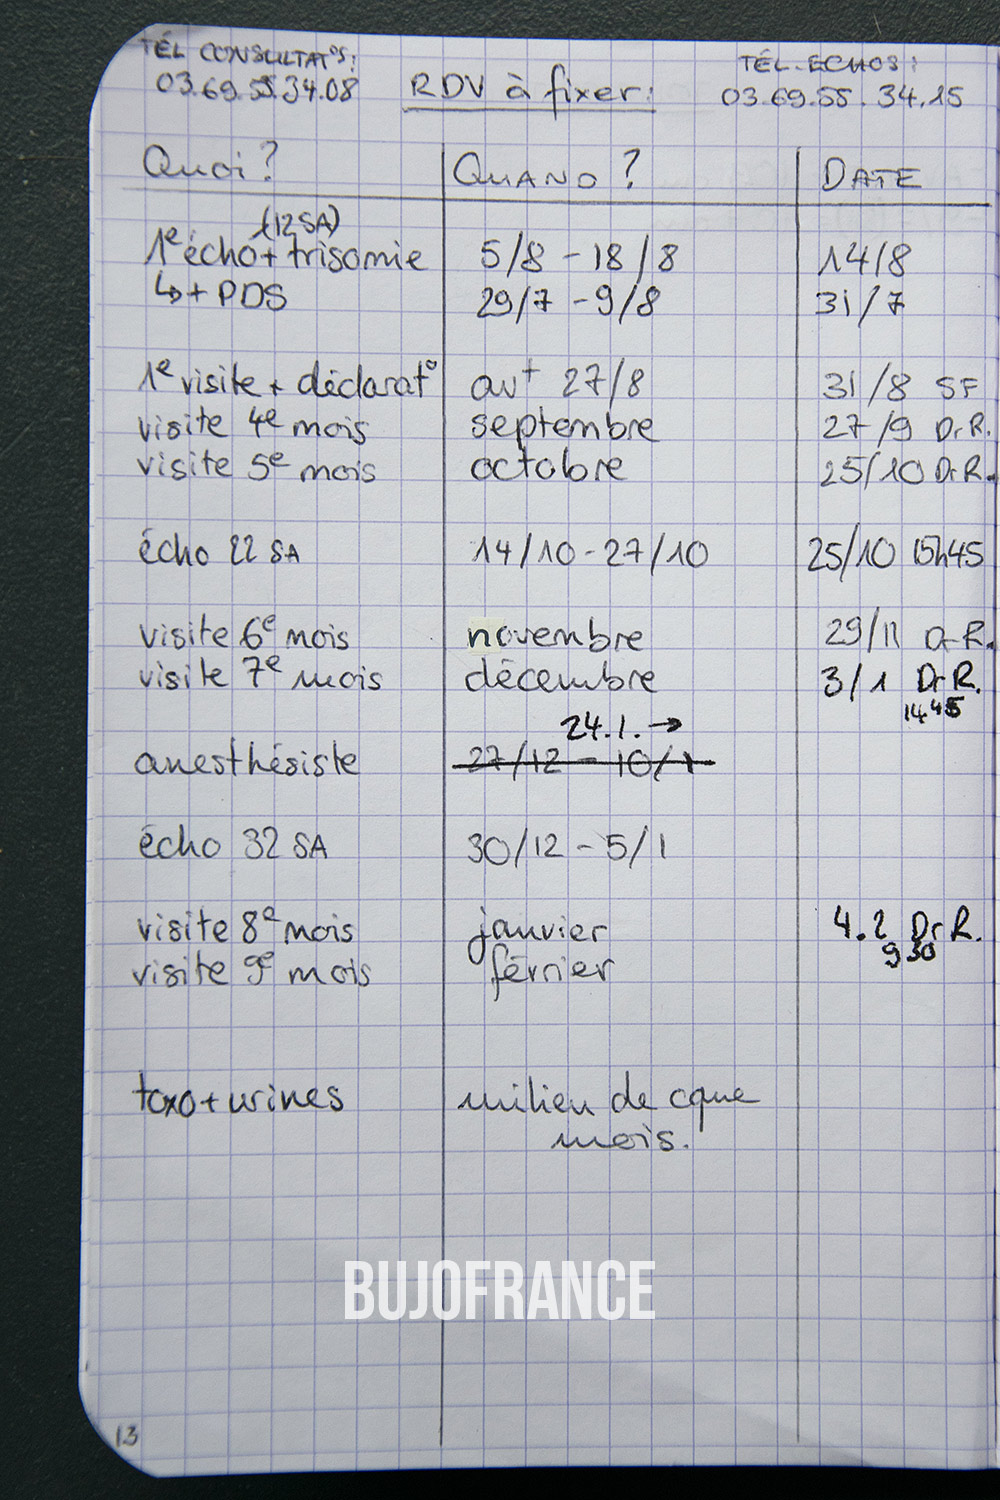 TÉL CONSULTAT°S: TÉL. ECHOS:
03.69.55.34.08 RDV à fixer: 03.69.55.34.15
Quoi? QUAND? DATE
(12 SA)
1e écho + trisomie 5/8 - 18/8 14/8
↳ + PDS 29/7 - 9/8 31/7
1e visite + déclarat° avt 27/8 31/8 SF
visite 4e mois septembre 27/9 Dr R.
visite 5e mois octobre 25/10 Dr R.
écho 22 SA 14/10 - 27/10 25/10 15h45
visite 6e mois novembre 29/11 Dr R.
visite 7e mois décembre 3/1 Dr R.
14 45
24.1. →
anesthésiste 27/12 - 10/1
écho 32 SA 30/12 - 5/1
visite 8e mois janvier 4.2 Dr R.
9 30
visite 9e mois février
toxo + urines milieu de cque
mois.
BUJOFRANCE
13